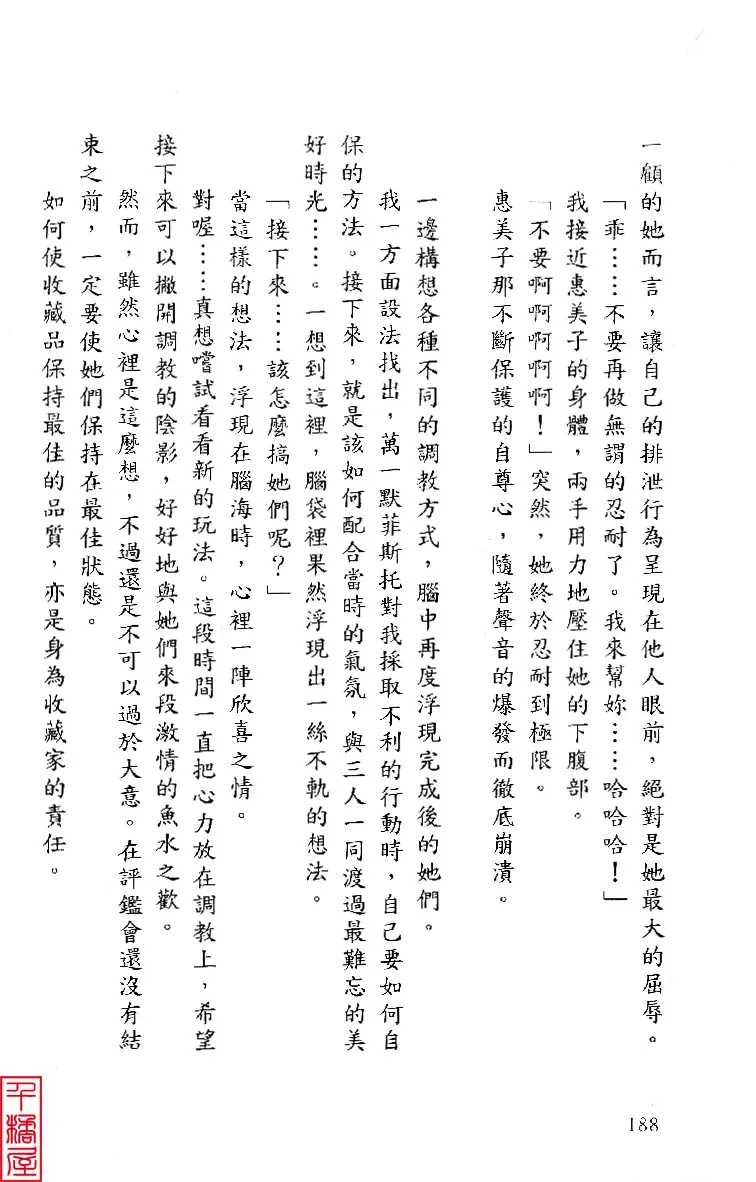 一顧的她而言，讓自己的排泄行為呈現在他人眼前，絕對是她最大的屈辱。
「乖……不要再做無謂的忍耐了。我來幫妳……哈哈哈！」
我接近惠美子的身體，兩手用力地壓住她的下腹部。
「不要啊啊啊啊！」突然，她終於忍耐到極限。
惠美子那不斷保護的自尊心，隨著聲音的爆發而徹底崩潰。
一邊構想各種不同的調教方式，腦中再度浮現完成後的她們。
我一方面設法找出，萬一默菲斯托對我採取不利的行動時，自己要如何自
保的方法。接下來，就是該如何配合當時的氣氛，與三人一同渡過最難忘的美
好時光……。一想到這裡，腦袋裡果然浮現出一絲不軌的想法。
「接下來……該怎麼搞她們呢？」
當這樣的想法，浮現在腦海時，心裡一陣欣喜之情。
對喔……真想嚐試看看新的玩法。這段時間一直把心力放在調教上，希望
接下來可以撇開調教的陰影，好好地與她們來段激情的魚水之歡。
然而，雖然心裡是這麼想，不過還是不可以過於大意。在評鑑會還沒有結
束之前，一定要使她們保持在最佳狀態。
如何使收藏品保持最佳的品質，亦是身為收藏家的責任。
188
千橘屋